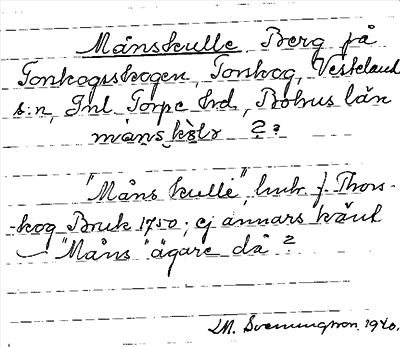 Månskulle, Berg på
Torskogsskogen, Torskog, Västerlanda
s:n, Inl. Torpe hrd, Bohus län
månskèlr ? ?
"Måns kulle", enl. f. Thors-
-kog Bruk 1750; ej annars känt
"Måns" ägare då ?
LM. Svenungsson 1940.